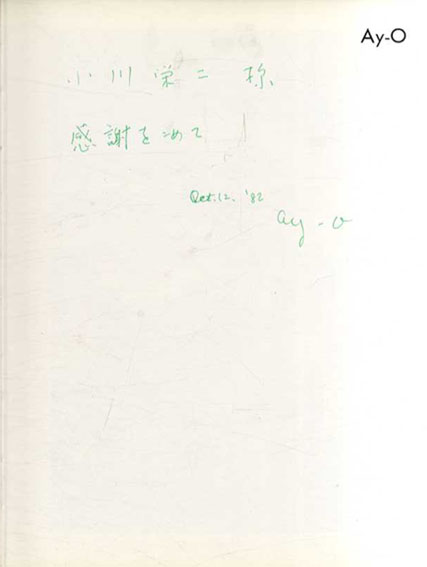 Ay-O
小川栄二様
感謝をこめて
Oct. 12. '82
ay-o